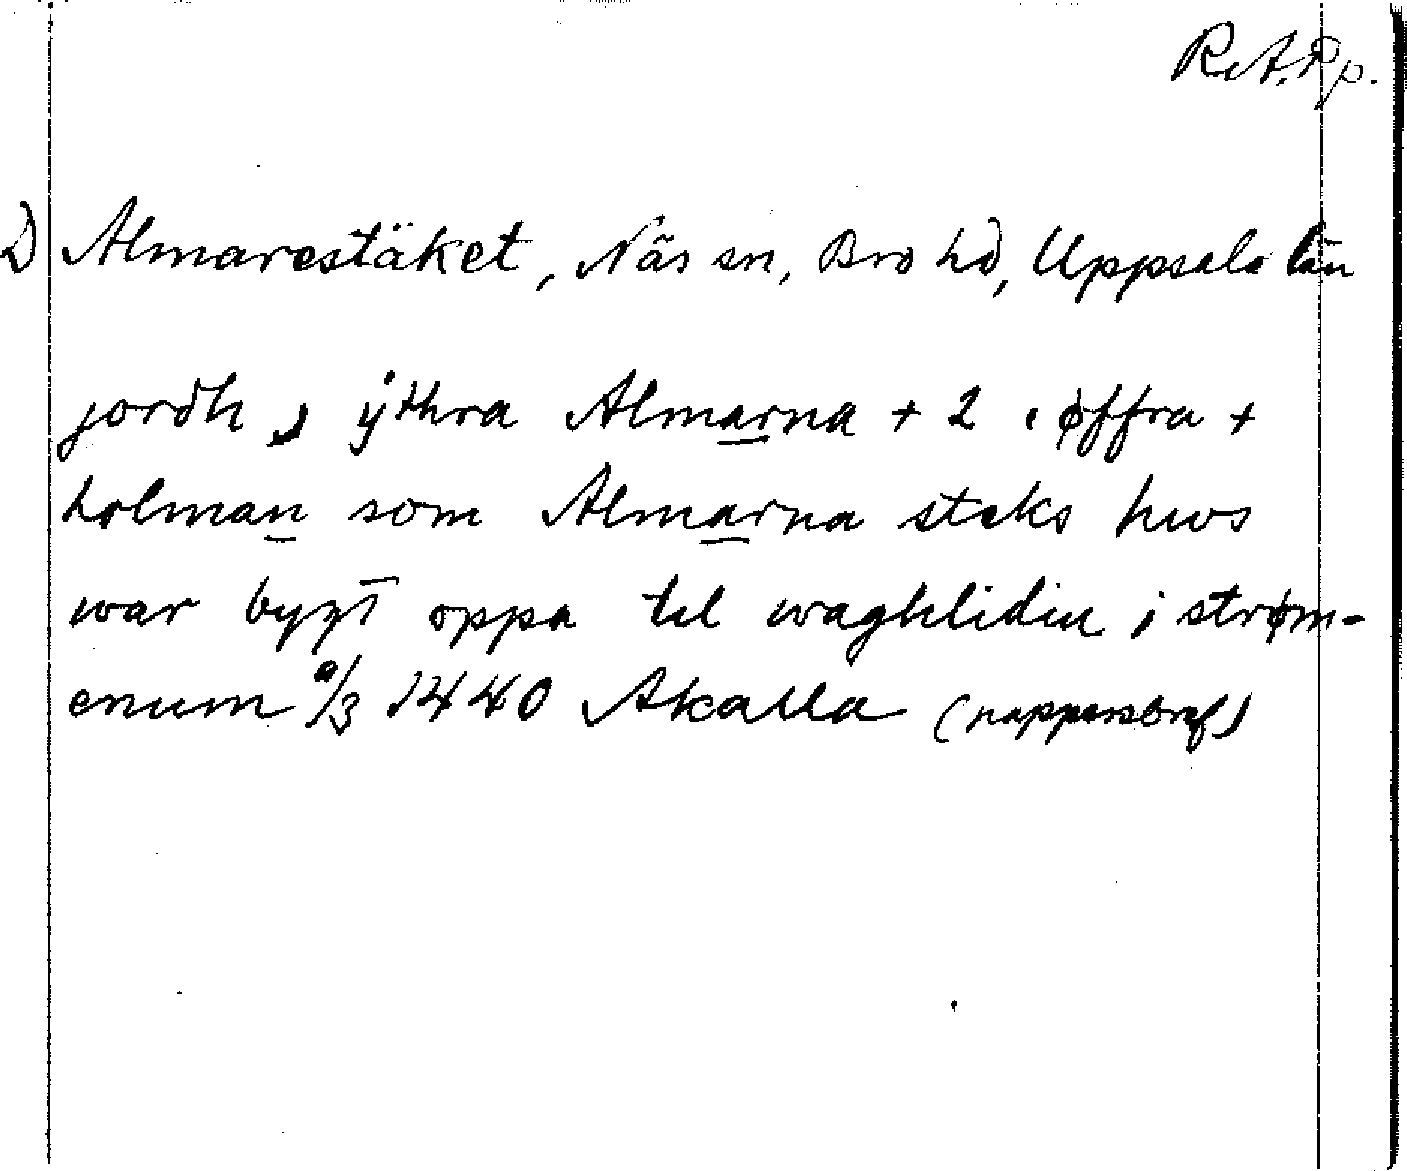 R.A. Pp.
D Almarestäket, Näs sn, Bro hd, Uppsala län
jordh i ýthra Almarna + 2 i øffra +
holman som Almarna stæks hws
war bygt oppa til waghlidin i strøm-
enum 9/3 1440 Akalla (pappersbref)